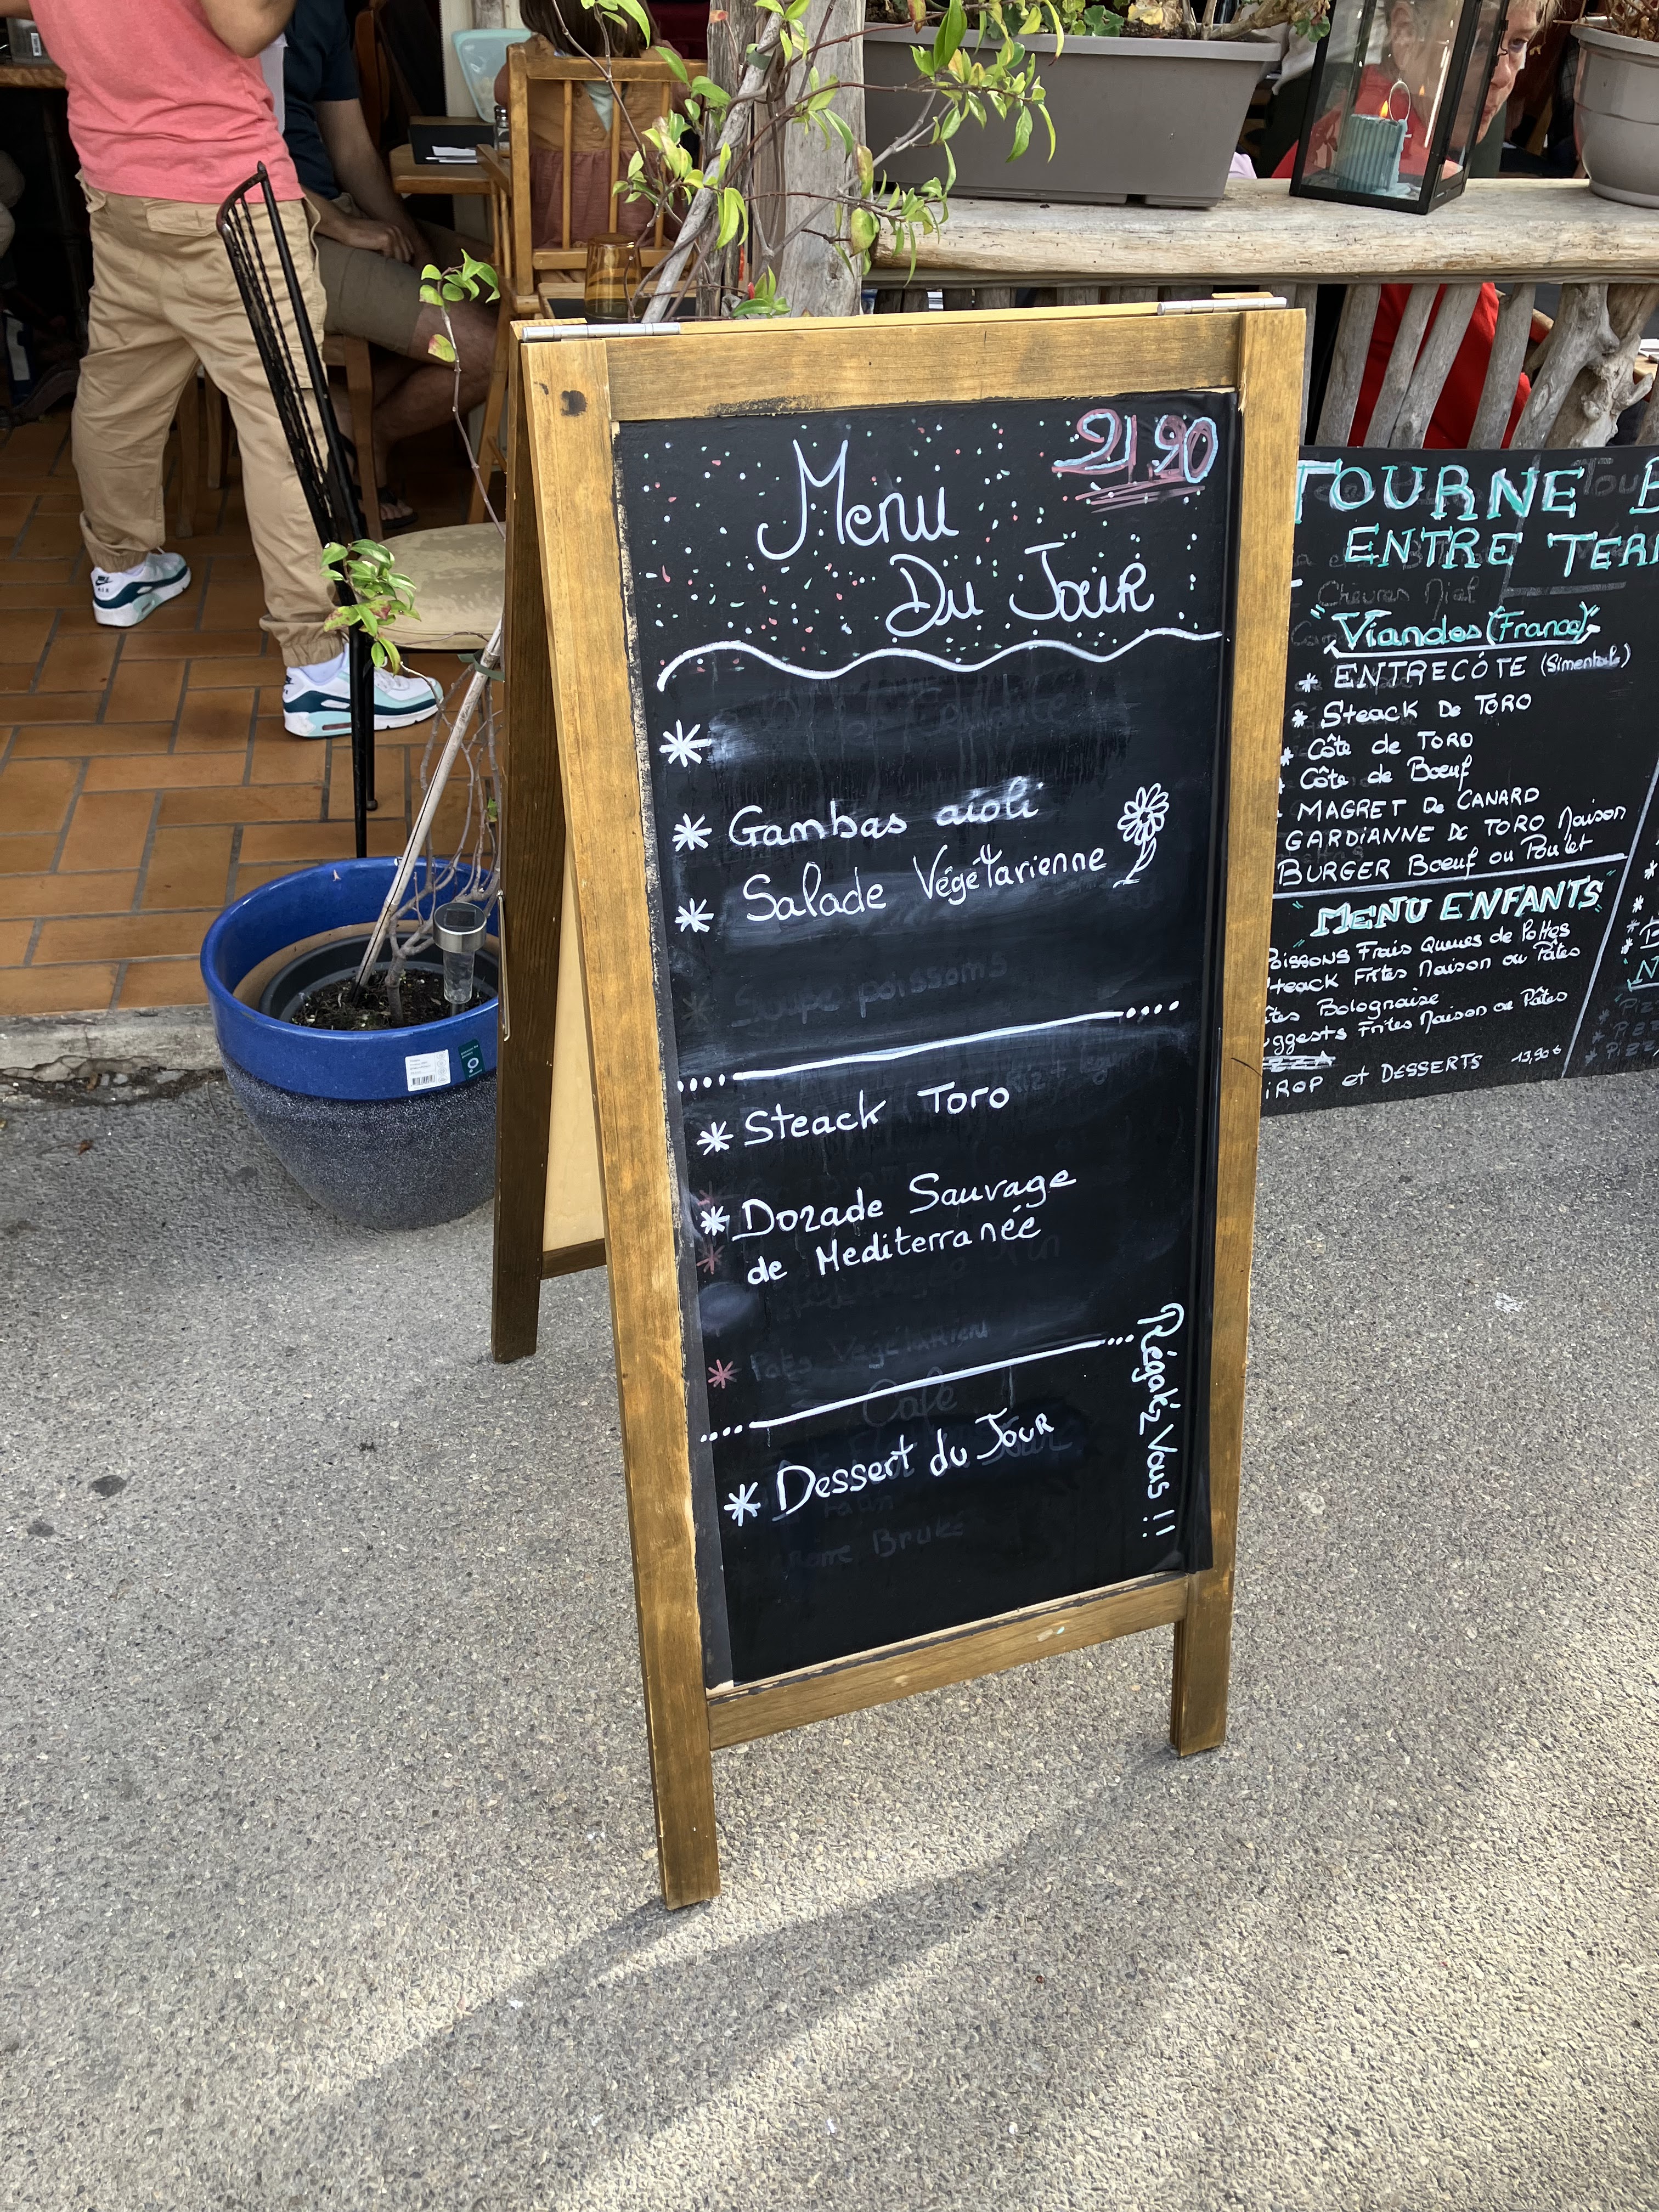 Menu
21,90
Du Jour
*
* Gambas aioli
* Salade Végétarienne
Soupe poissons
* Steack Toro
* Dorade Sauvage
de Mediterranée
* Pates Végétarien
Café
* Dessert du Jour
Régalez Vous !!
TOURNE
ENTRE
Viandes (France)
* ENTRECÔTE (Simentale)
* Steack De TORO
* Côte de TORO
* Côte de Bœuf
MAGRET De CANARD
GARDIANNE De TORO Maison
BURGER Bœuf ou Poulet
MENU ENFANTS
Poissons Frais Queues de
Steack Frites Maison ou Pâtes
Bolognaise
Frites Maison ou Pâtes
et DESSERTS 13,90€